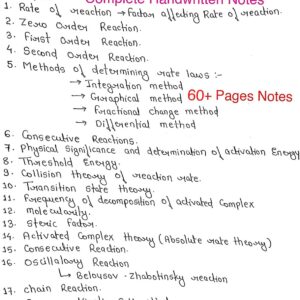 Complete Handwritten Notes
1. Rate of reaction → Factor affecting Rate of reaction.
2. Zero Order Reaction.
3. First order Reaction.
4. Second order Reaction.
5. Methods of determining rate laws :-
→ Integration method
→ Graphical method
60+ Pages Notes
→ fractional change method
→ Differential method
6. Consecutive Reactions.
7. Physical Significance and determination of Activation Energy
8. Threshold Energy.
9. Collision theory of reaction rate.
10. Transition state theory.
11. Frequency of decomposition of activated Complex
12. molecularity.
13. steric factor.
14. Activated Complex theory (Absolute rate theory)
15. Consecutive Reaction.
16. Oscillatory Reaction
↳ Belousov-Zhabotinsky reaction
17. chain Reaction.